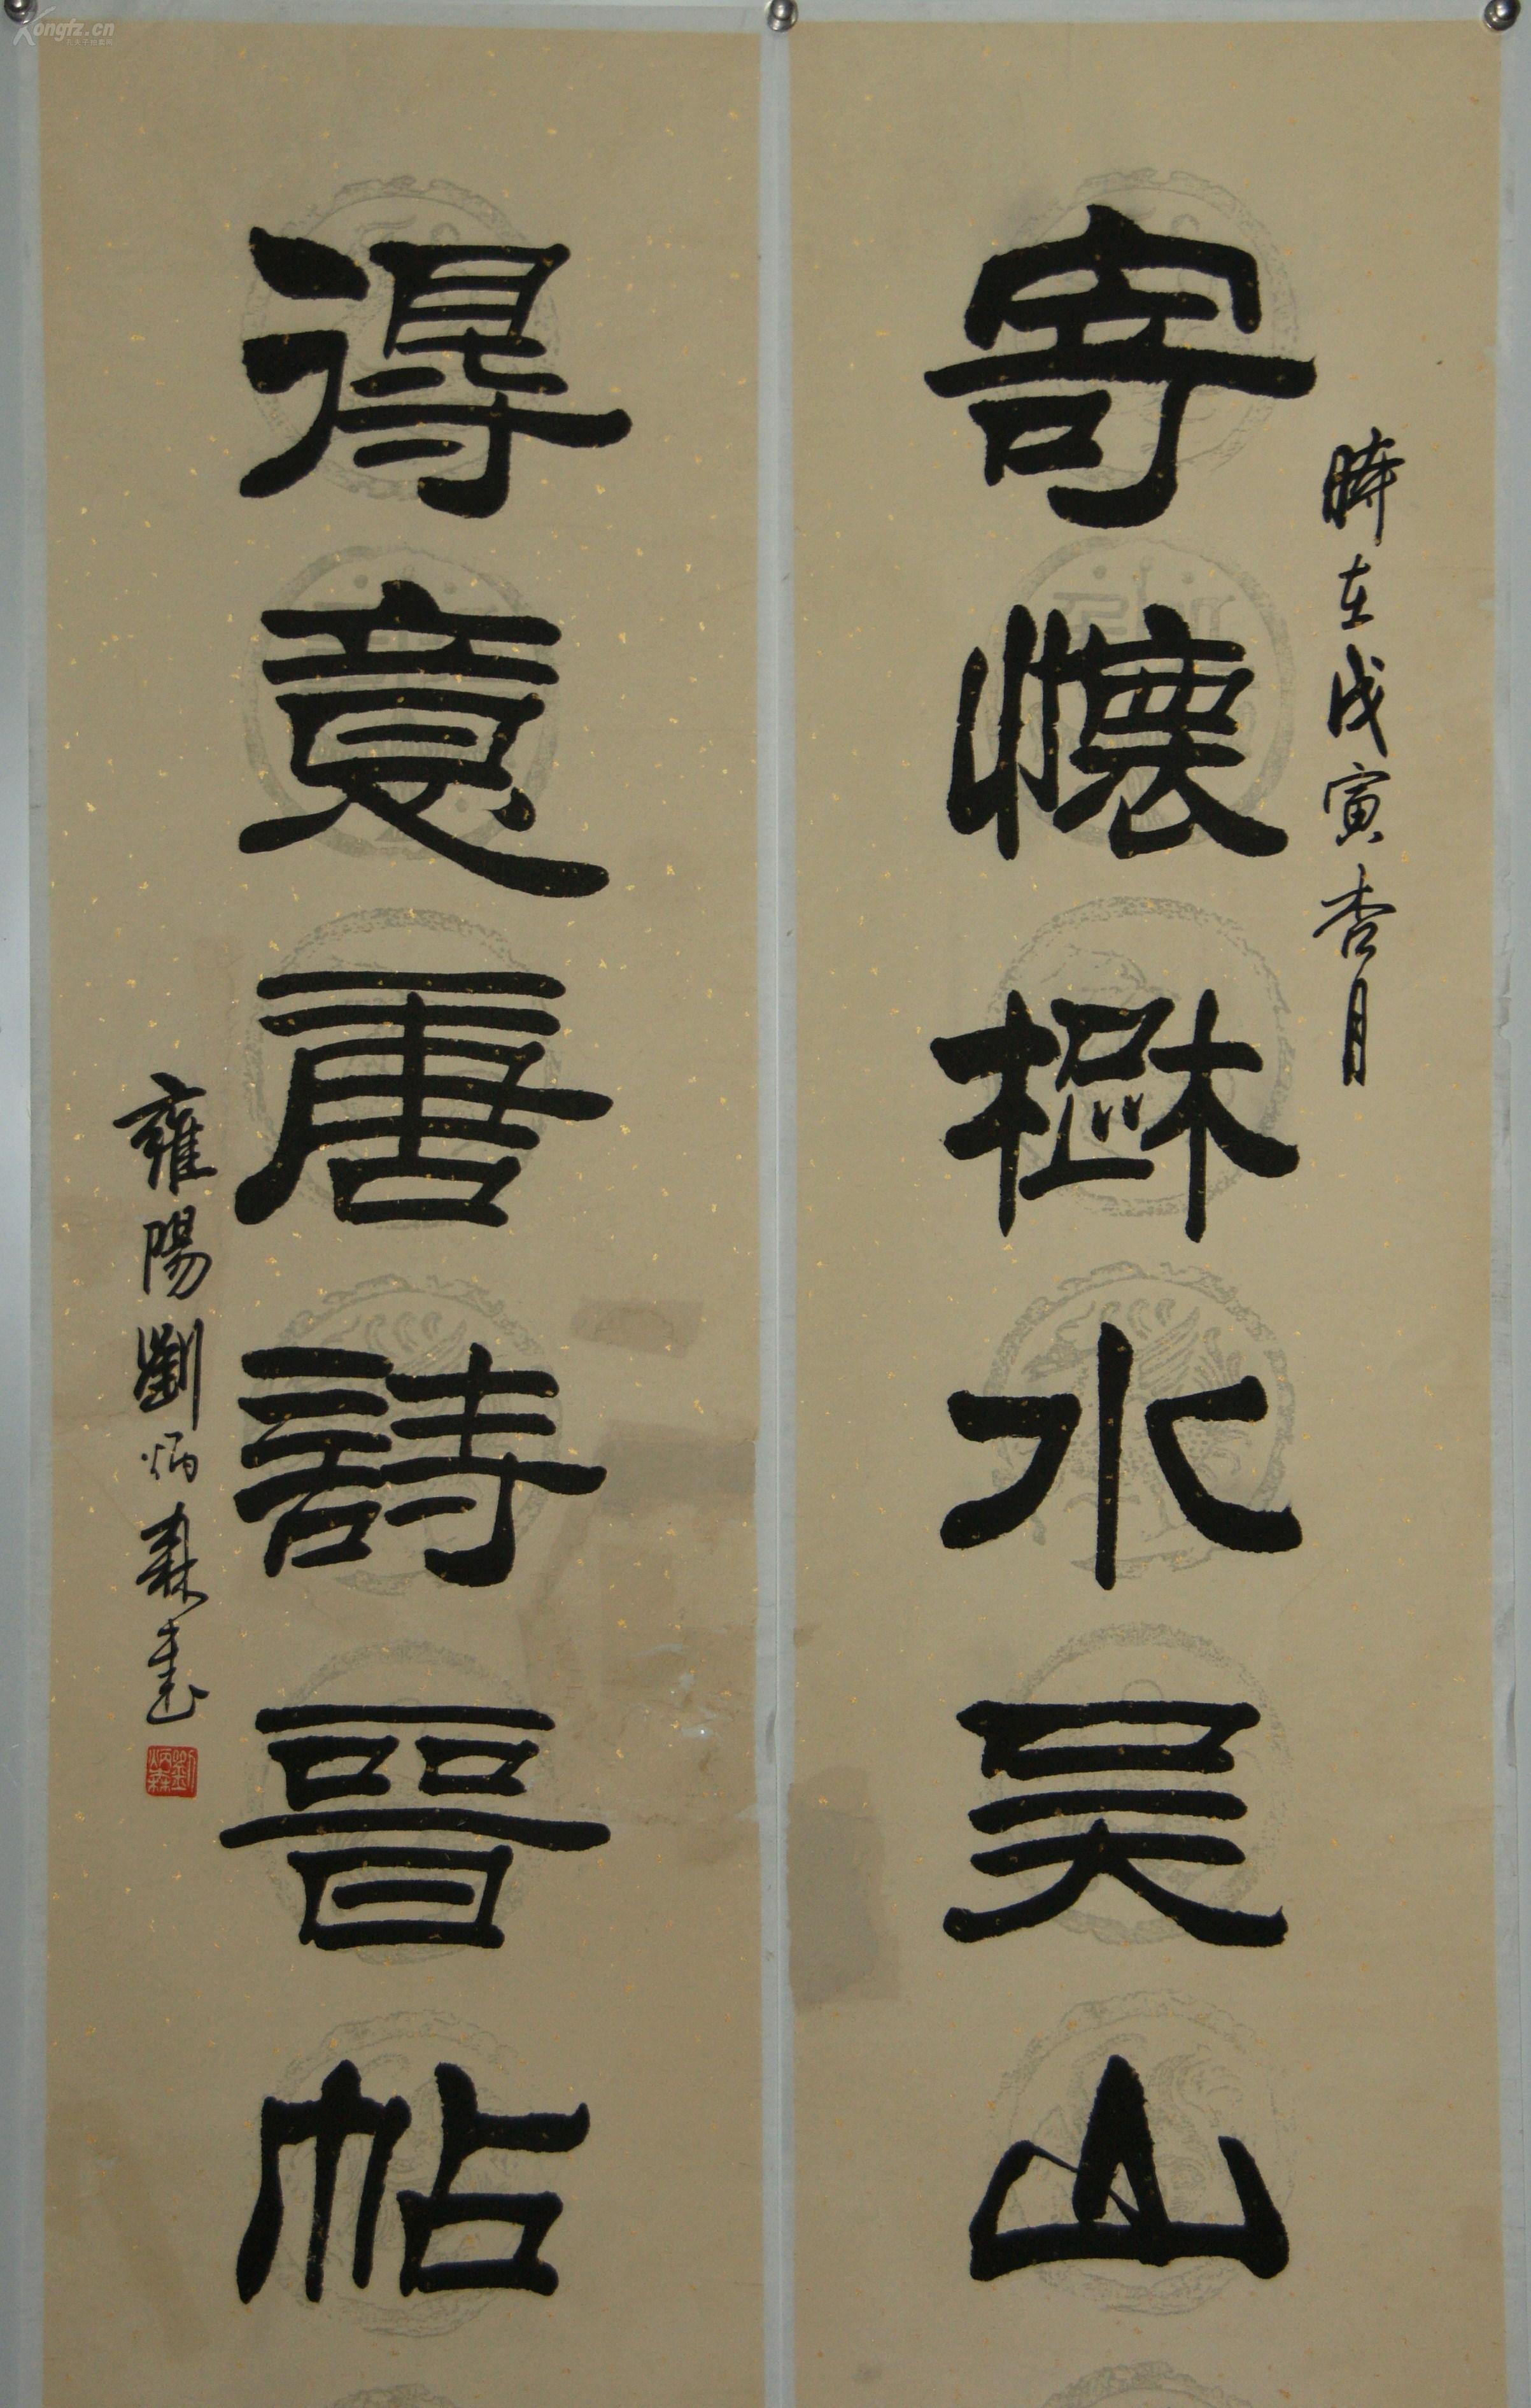 時在戊寅杏月
寄懷楚水吳山
得意唐詩晉帖
雍陽劉炳森書
劉炳森
Kongfz.cn